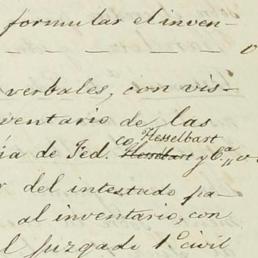 formular el inven-
verbales, con vis-
ventario de las
ía de Fedco Hesselbart
Hesselbart y Ca
r del intestado pa-
al inventario, con
l Juzgado 1o civil